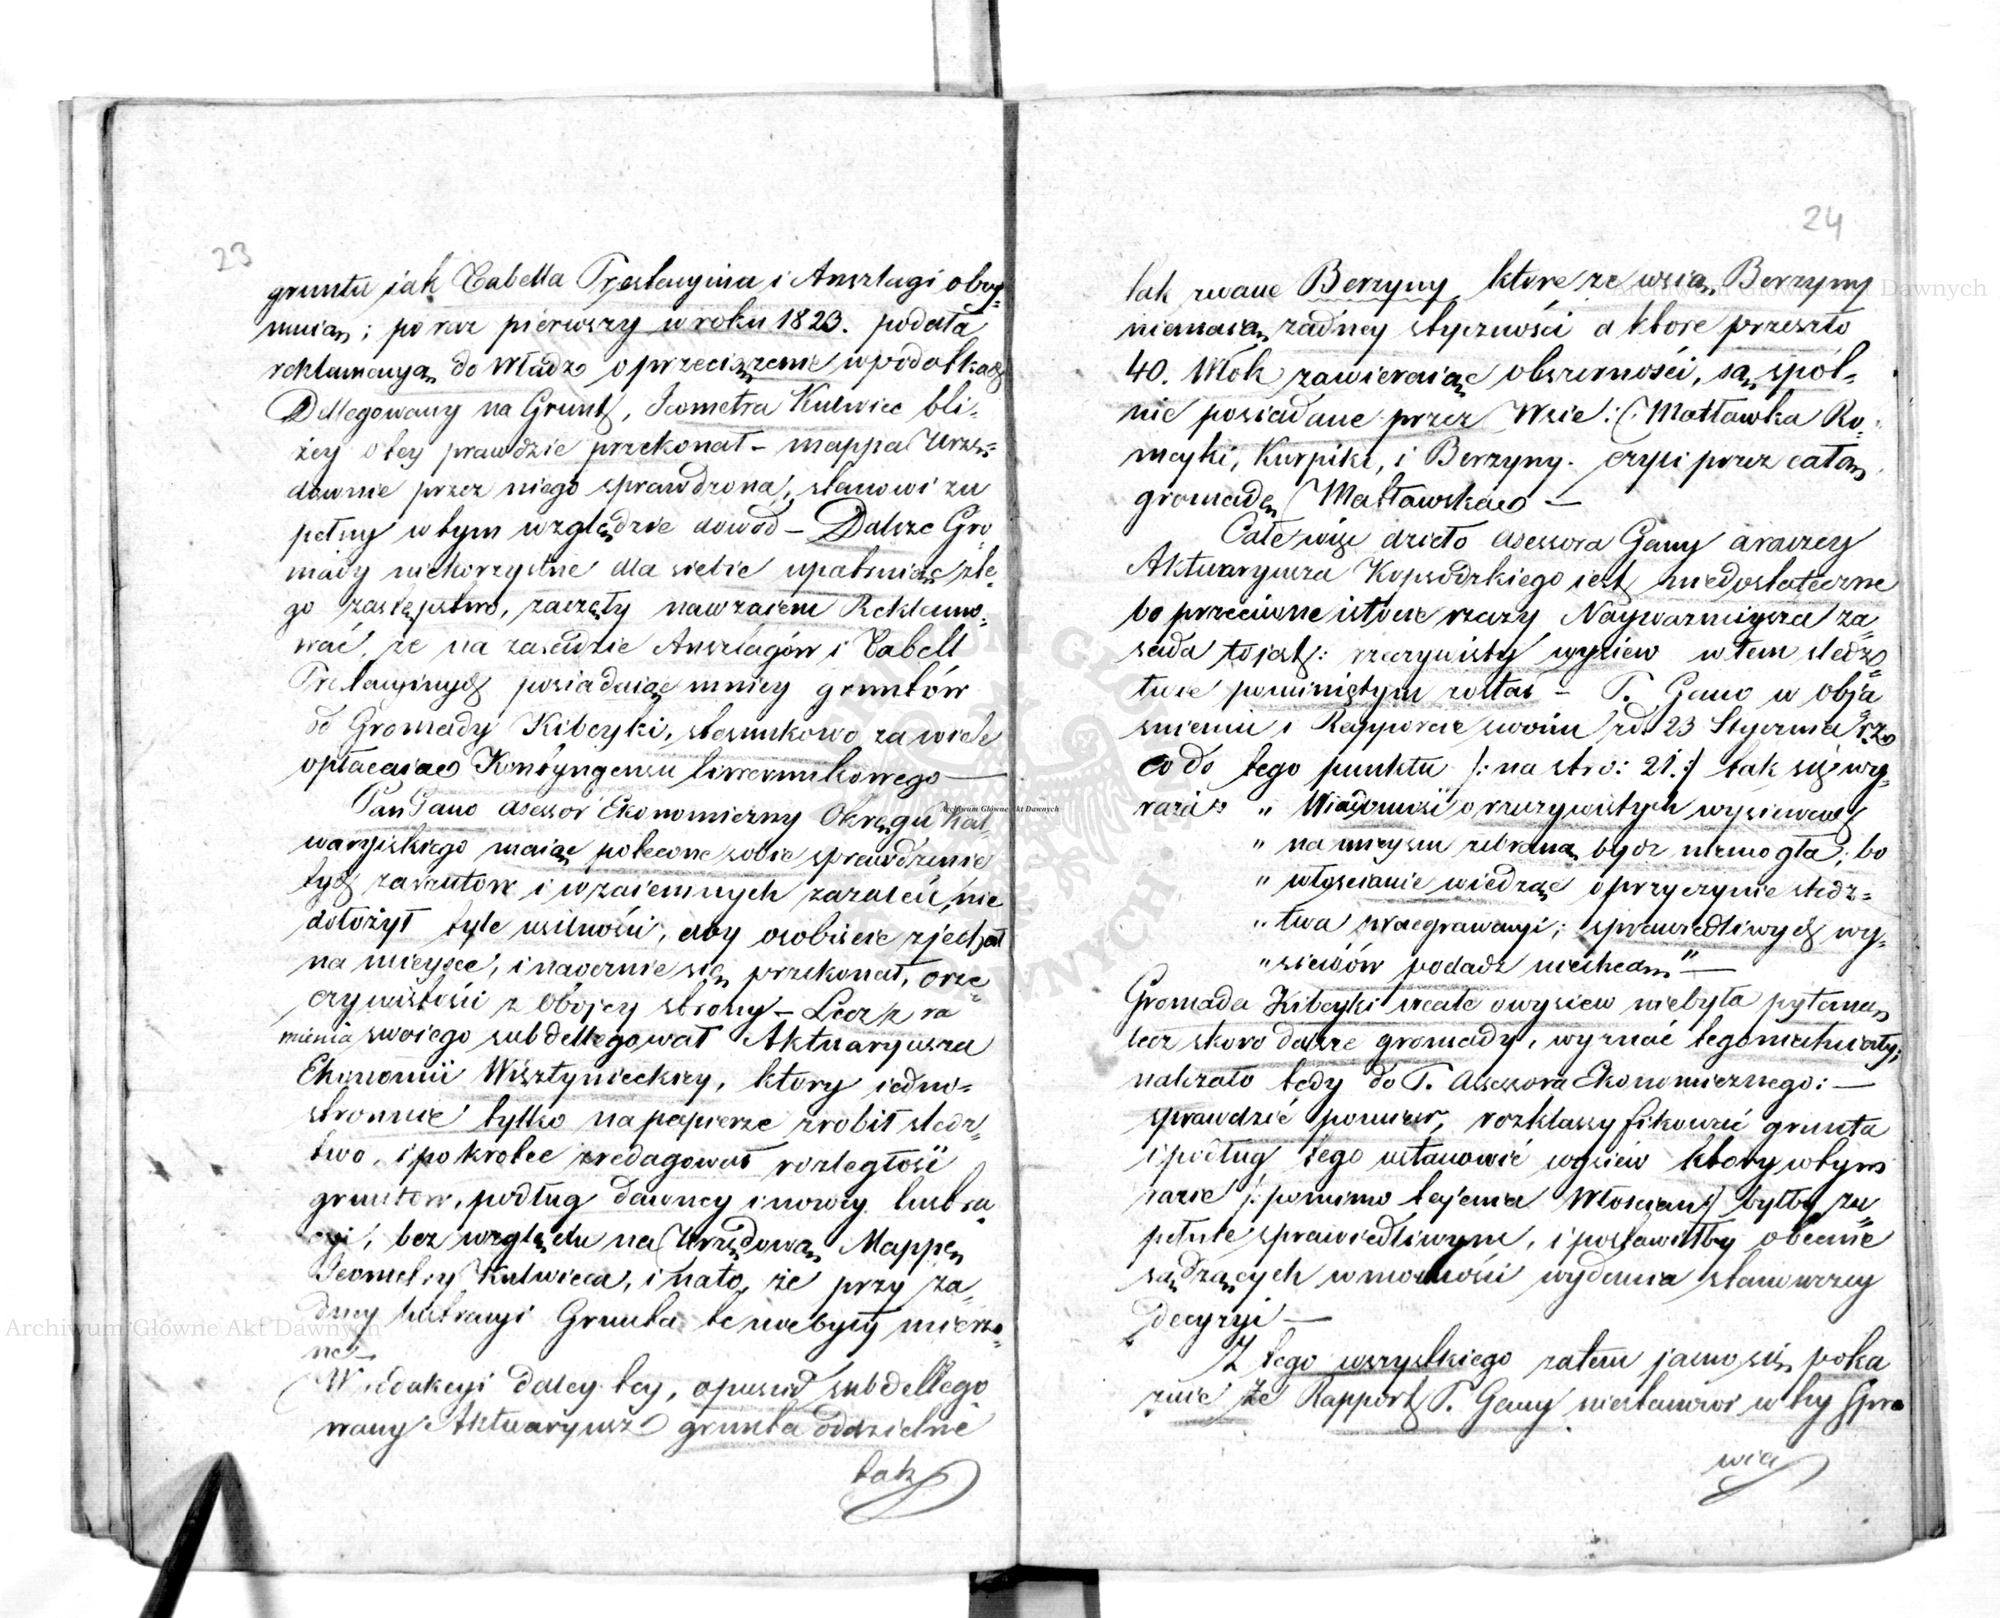 23
gruntu jak Tabella Prestacyina i Anszlagi obey-
muią; po raz pierwszy w roku 1823. podała
reklamacyą do Władz o przeciążenie w podatkach
Dellegowany na Grunt, Jeometra Kulwiec bli-
żey o tey prawdzie przekonał – mappa Urzę-
downie przez niego sprawdzona, stanowi zu
pełny w tym względzie dowód – Dalsze Gro
mady niekorzystne dla siebie upatruiąc zte-
go zastępstwo, zaczęły nawzaiem Reklamo-
wać, że na zasadzie Anszlagów i Tabell
Prestacyinych posiadaiąc mniey gruntów
od Gromady Kibeyki, stosunkowo za wiele
opłacaiąc Kontyngensu liwerunkowego —
Pan Gano Assessor Ekonomiczny Okręgu Kal-
waryiskiego maiąc polecone sobie sprawdzenie
tych zarzutów i wzaiemnych zażaleń, nie
dołożył tyle usilności, aby osobiście zjechał
na mieysce, i naocznie się przekonał, o rze-
czywistości z obojey strony – Lecz z ra
mienia swoiego subdellegował Aktuaryusza
Ekonomii Wisztynieckiey, ktory iedno-
stronnie tylko na papierze zrobił sledz-
two, i po krotce zredagował rozległość
gruntów, podług dawney i nowey lustra
cyi, bez względu na Urzędową Mappę
Jeometry Kulwieca, i nato, że przy ża-
dney lustracyi Grunta te niebyły mierzo-
ne —
W redakcyi daley tey, opuscił subdellego
wany Aktuaryusz grunta oddzielne
tak
24
tak zwane Berżyny, które ze wsią Berżyny
niemaią żadney styczności a ktore przeszło
40. Włok zawieraiąc obszerności, są spól-
nie posiadane przez Wsie: (: Matławka Ro-
meyki, Kurpiki, i Berżyny. czyli przez całą
gromadę Matławską —
Całe więc dzieło Assessora Gany a raczey
Aktuaryusza Kopsodzkiego iest niedostateczne
bo przeciwne istocie rzeczy Naywaznieysza za-
sada to jest: rzeczywisty wysiew w tem sledz-
twie pominiętym został – P. Gano w obja
snieniu i Rapporcie swoim zd. 23 Stycznia r. z.
co do tego punktu /: na str: 21. :/ tak się wy-
raził: „ Wiadomość o rzeczywistych wysiewach
„ na mieyscu zebraną bydz niemogła; bo
„ włoscianie wiedząc o przyczynie sledz-
„ twa praegrawacyi; sprawiedliwych wy-
„ siewów podadz niechcą" —
Gromada Kibeyki wcale o wysiew niebyła pytaną
lecz skoro dalsze gromady, wyznać tego niechciały;
należało tedy do P. Assessora Ekonomicznego: —
sprawdzić pomiar, rozklassyfikować grunta
i podług tego ustanowić wysiew ktory w tym
razie /: pomimo tajenia Włoscian :/ byłby zu
pełnie sprawiedliwym, i postawiłby obecnie
sądzących w możności wydania stanowczey
decyzyi —
Z tego wszystkiego zatem jawno się poka
zuie że Rapport P. Gany niestanowi w tey Spra
wie
Archiwum Główne Akt Dawnych
Archiwum Główne Akt Dawnych
Archiwum Główne Akt Dawnych